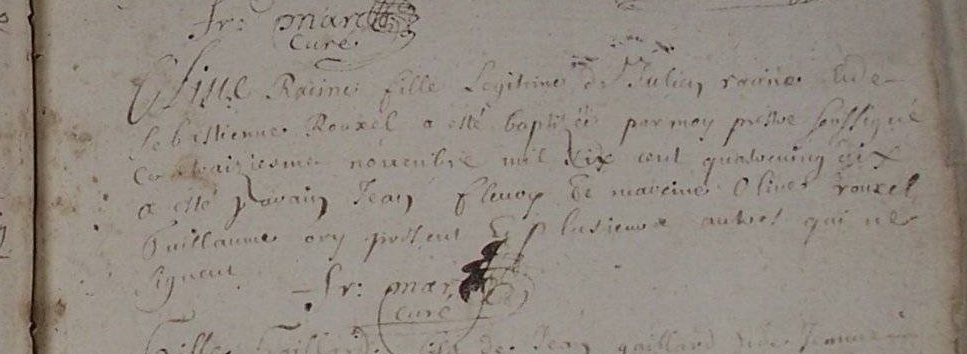 fr: marc
Curé
Racine fille Legitime de Julien racine Et de
Sebastienne Rouxel a esté baptizée par moy prêtre soussigné
Ce traiziesme novembre mil six cent quatrevingt dix
a esté parain Jean fleury Et maraine Olive rouxel
Guillaume ory present Et plusieurs autres qui ne
signent
fr: mar
curé
fils de Jean gaillard